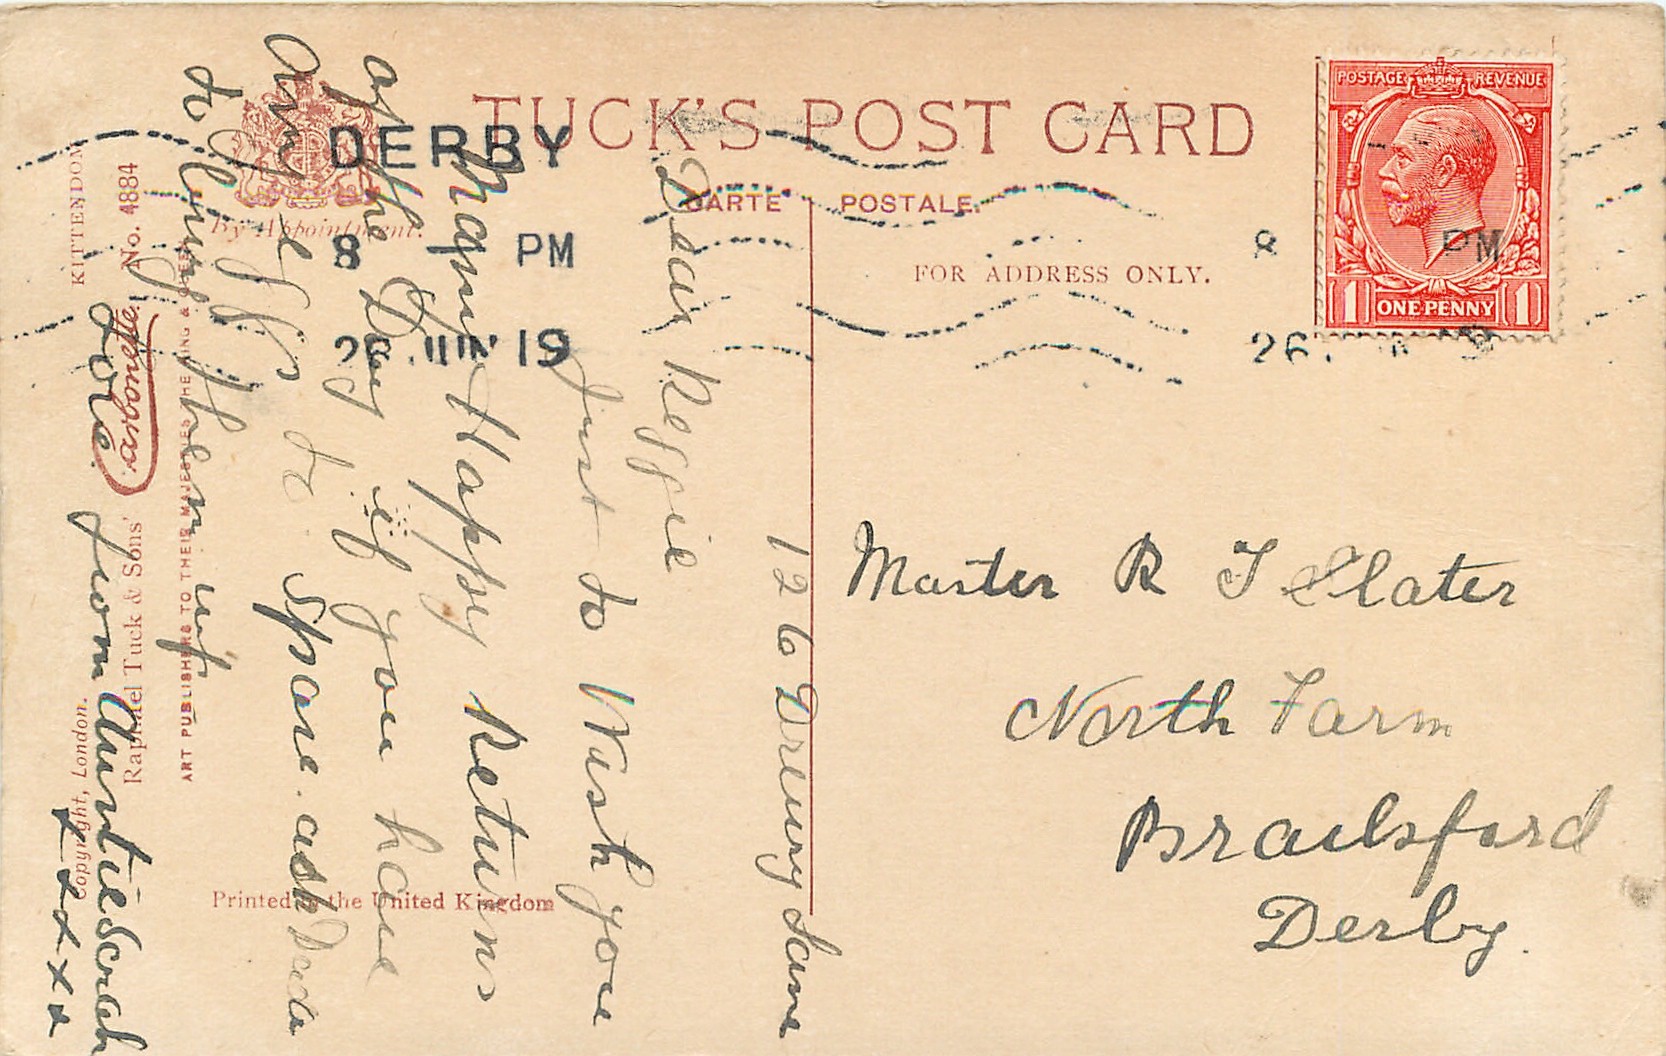 TUCK'S POST CARD
CARTE POSTALE.
FOR ADDRESS ONLY.
By Appointment.
POSTAGE REVENUE
1 ONE PENNY 1
DERBY
8 PM
26 JUN 19
8 PM
26. 19
126 Drewry Lane
Dear Reggie
Just to Wish you
Many Happy Returns
of the Day if you have
any eggs to spare. ask Dada
to bring them up
love from Auntie Sarah
x x x x x x
Master R T Slater
North Farm
Brailsford
Derby.
KITTENDOM
No. 4884
Raphael Tuck & Sons'
ART PUBLISHERS TO THEIR MAJESTIES THE KING & QUEEN
Copyright, London.
Printed in the United Kingdom